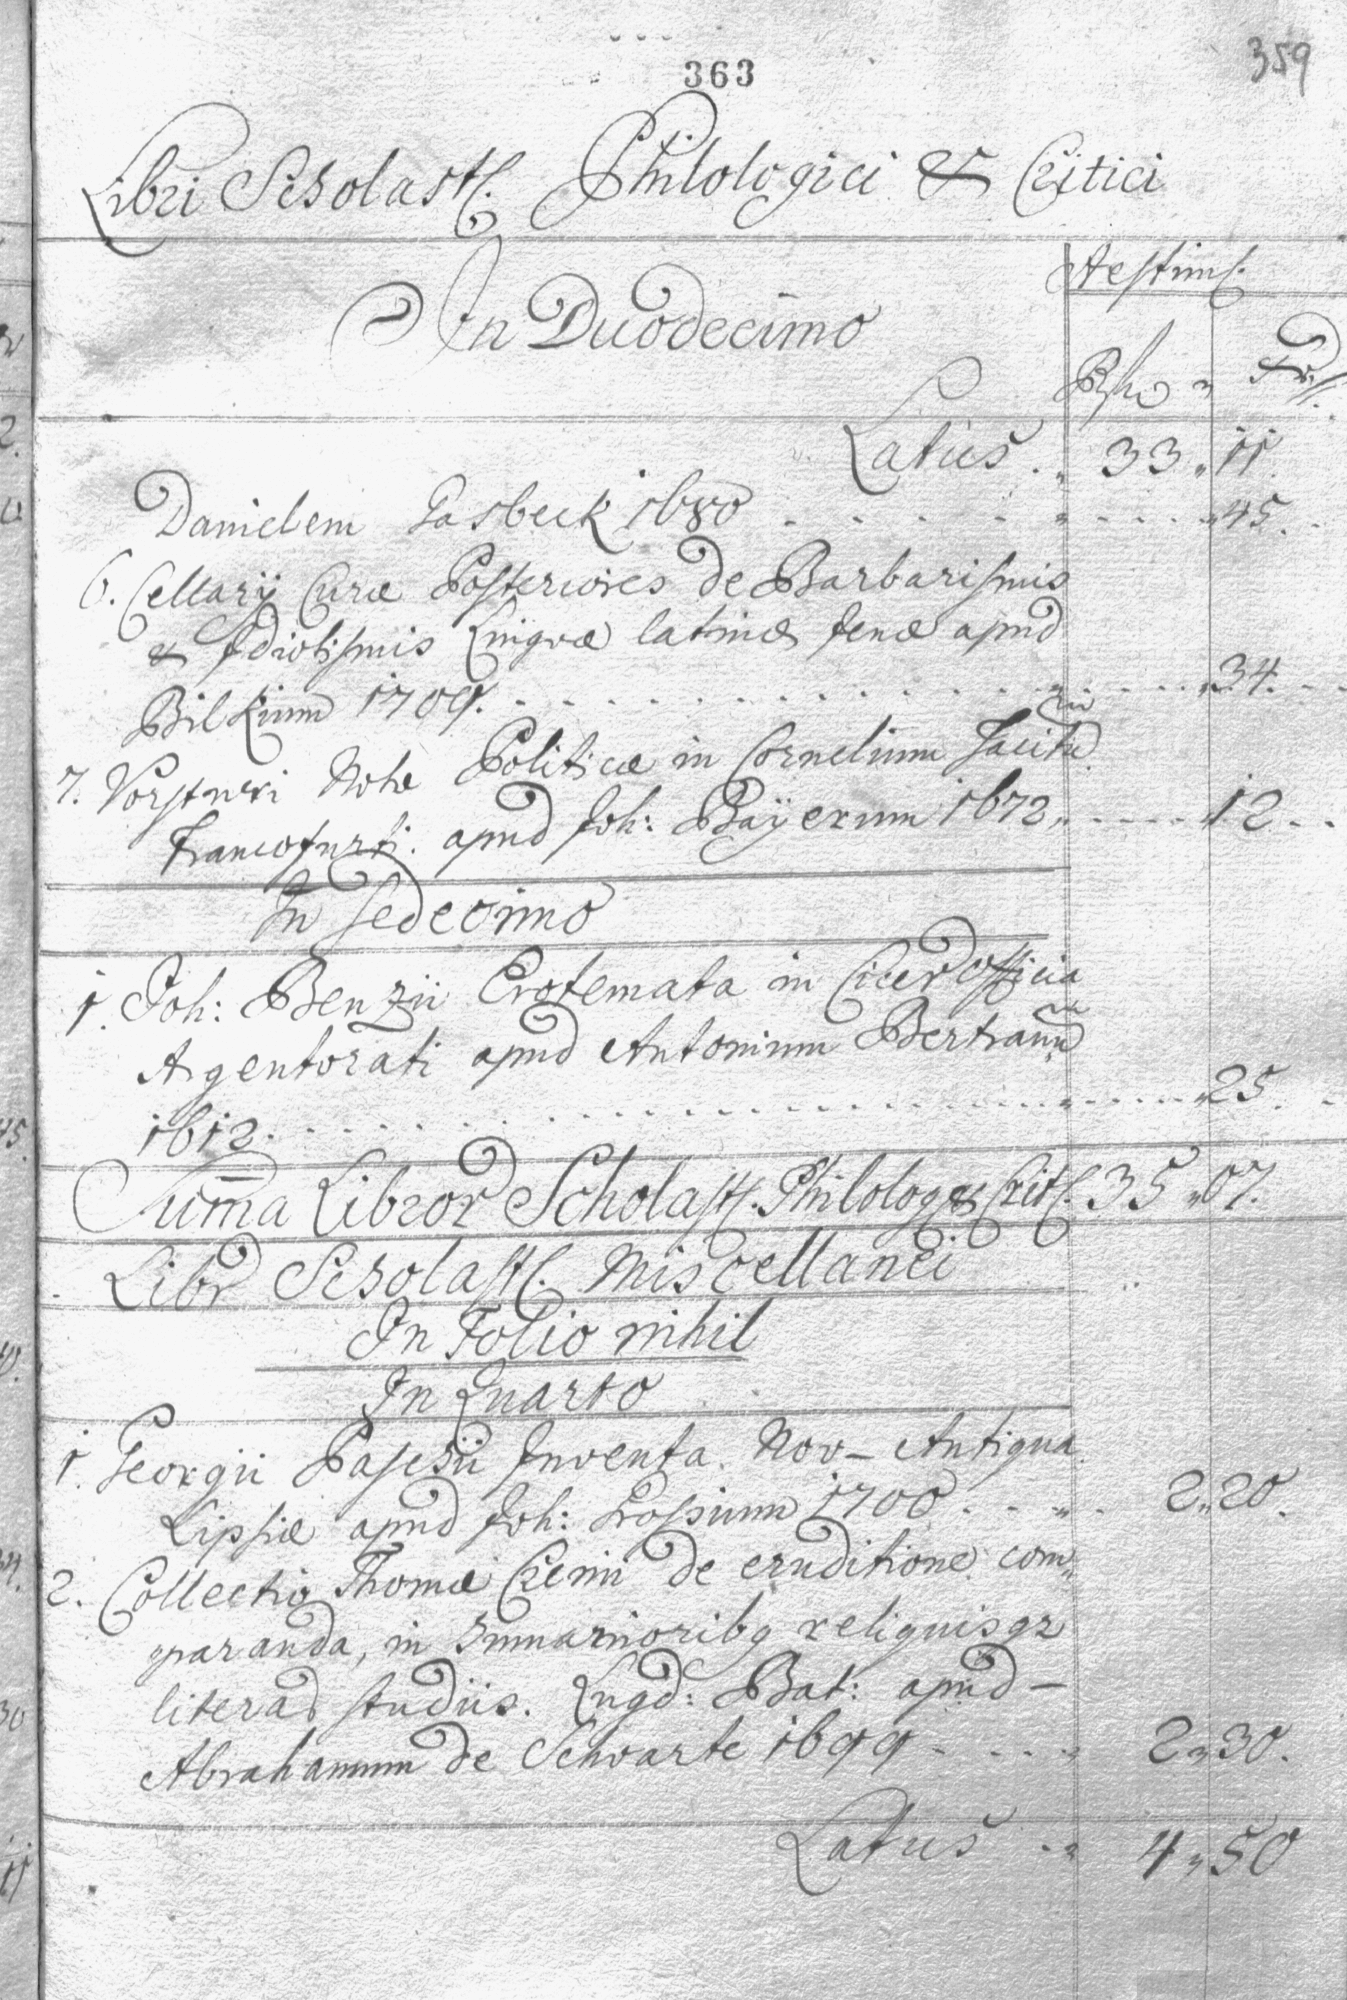 363
359
Libri Scholast. Philologici & Critici
Aestim.
In Duodecimo
Rh „ Fr.
Latus „ 33 „ 11
Danielem Pasbeck 1680 „ 45.
6. Cellarij Curæ Posteriores de Barbarismis
& Idiotismis Lingvæ latinæ Jenæ apud
Bilkium 1709. „ 34.
7. Vorstneri Notæ Politicæ in Cornelium Tacitu
Francofurti. apud Joh: Baÿerum 1672 „ 12
In Sedecimo
1. Joh: Benzii Erotemata in Cicer Officia
Argentorati apud Antonium Bertranu
1612. „ 25.
Sum̄a Libror Scholast. Philolog & Crit. 35 „ 07.
Libr Scholast. Miscellanei
In Folio nihil
In Quarto
1. Georgii Paschii Inventa Nov- Antiqua
Lipsiæ apud Joh: Grossium 1700 „ 2 „ 20.
2. Collectio Thomæ Crenii de eruditione com„
paranda, in humanioribq reliquisqz
literar studiis. Lugd: Bat: apud -
Abrahamum de Schwarte 1699 „ 2 „ 30.
Latus „ 4 „ 50